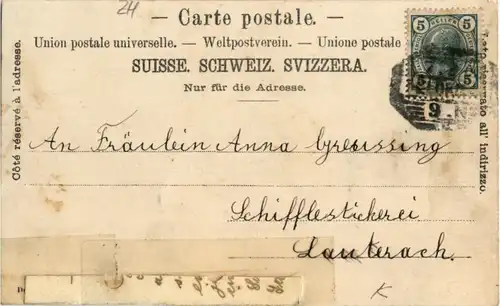 24
— Carte postale. —
Union postale universelle. — Weltpostverein. — Unione postale
SUISSE. SCHWEIZ. SVIZZERA.
Nur für die Adresse.
Côté réservé à l'adresse.
all' indirizzo.
5 5
5 5
9
An Fräulein Anna Greussing
Schifflestickerei
Lauterach.